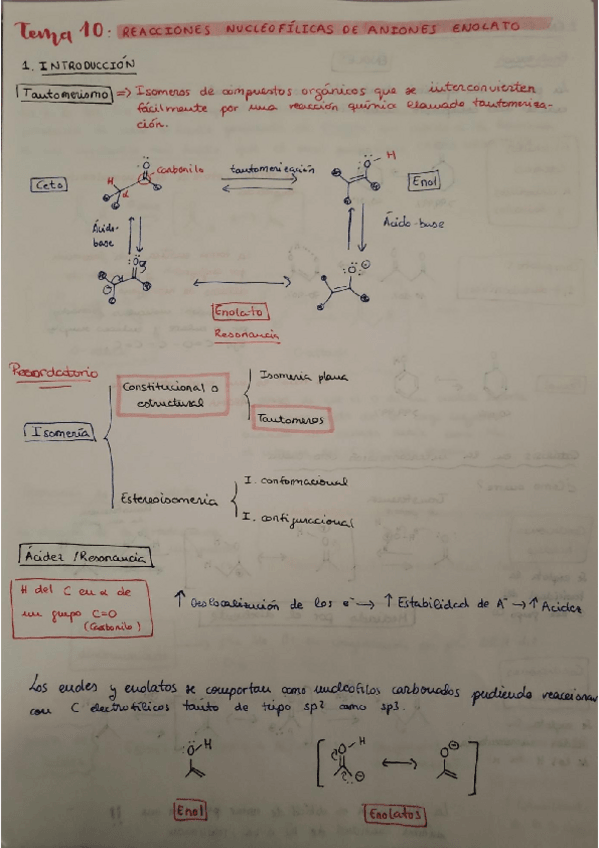 Tema 10: REACCIONES NUCLEOFÍLICAS DE ANIONES ENOLATO
1. INTRODUCCIÓN
Tautomerismo => Isomeros de compuestos orgánicos que se interconvierten
fácilmente por una reacción química llamado tautomeriza-
ción.
Ceto
H
α
O
Carbonilo
tautomerización
O
H
Enol
Ácido-
base
Ácido-base
O
O
Enolato
Resonancia
Recordatorio
Isomería
Constitucional o
estructural
Isomería plana
Tautomeros
Estereoisomeria
I. conformacional
I. configuracional
Ácidez /Resonancia
H del C en α de
un grupo C=O
(Carbonilo)
↑ Deslocalización de los e⁻ → ↑ Estabilidad de A⁻ → ↑ Acidez
Los enoles y enolatos se comportan como nucleófilos carbonados pudiendo reaccionar
con C electrofílicos tanto de tripo sp2 como sp3.
O H
O H
O
Enol
Enolatos